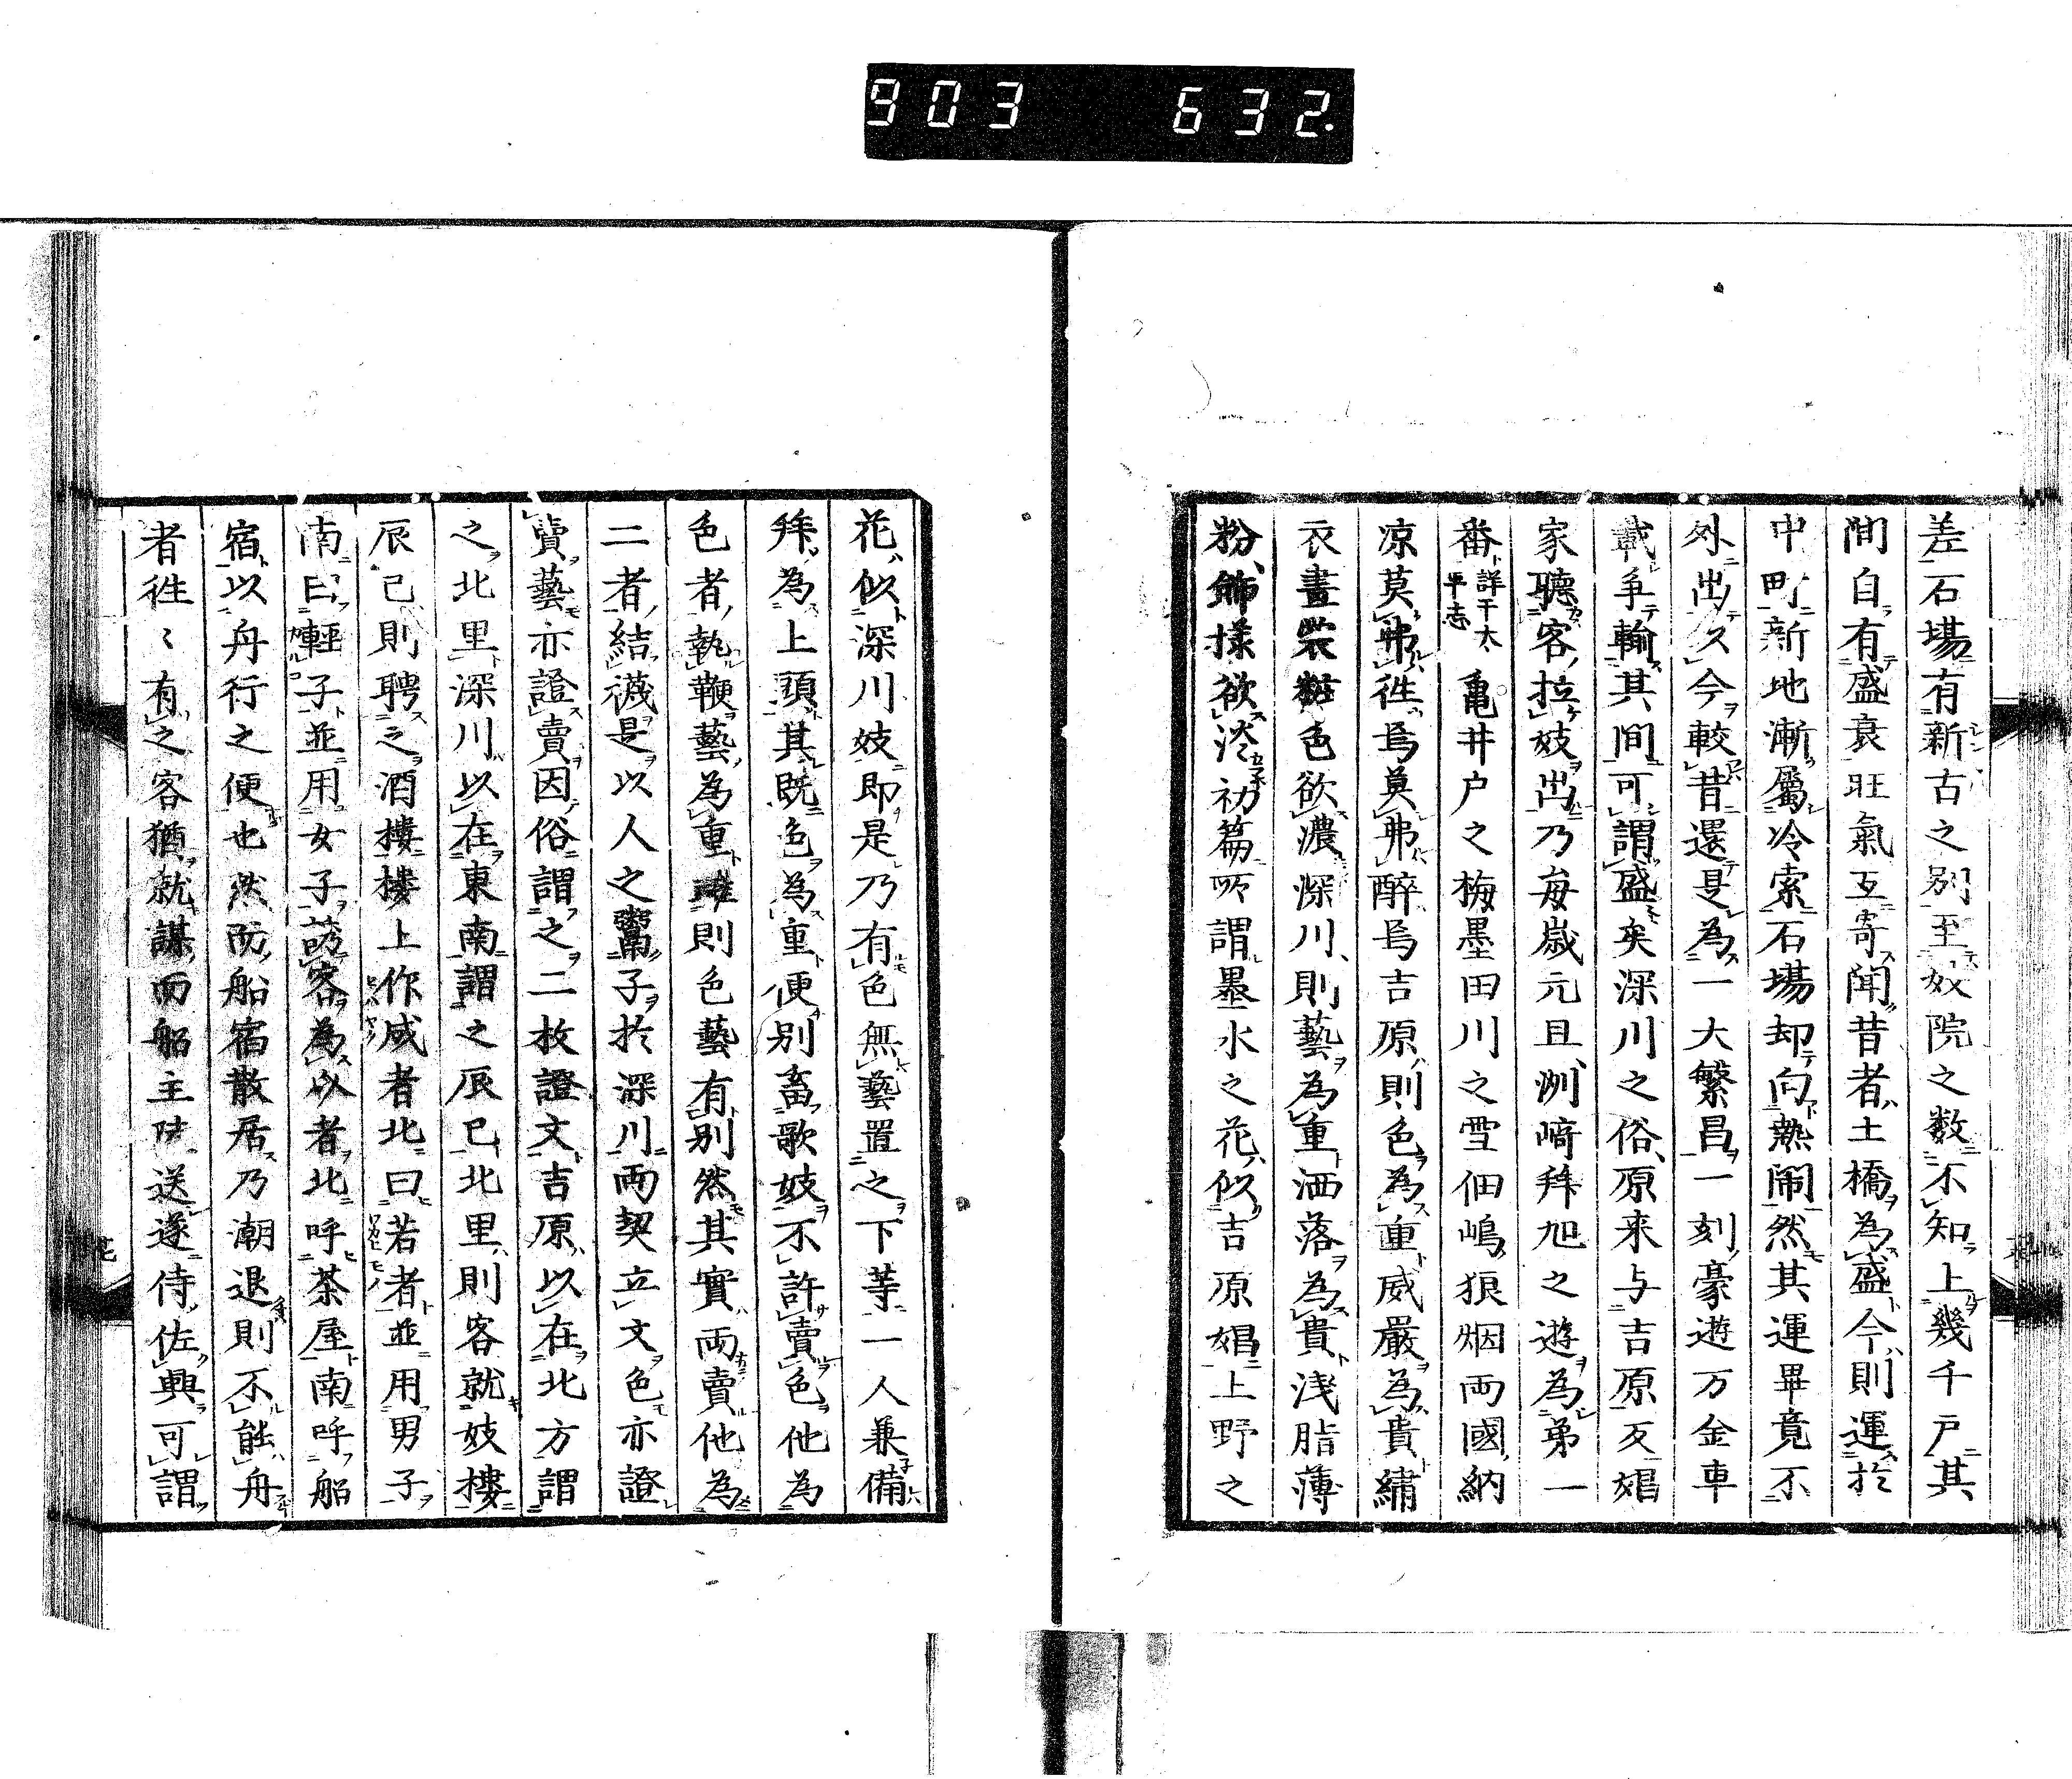 903 632.
差石場有新古之別至奴院之数不知上幾千戸其
間自有盛衰旺氣互寄聞昔者土橋為盛今則運於
中町新地漸屬冷索石場却向熱鬧然其運畢竟不
外出久今較昔還是為一大繁昌一刻豪遊万金車
載争輸其間可謂盛矣深川之俗原来与吉原反娼
家聴客拉妓出乃毎歳元旦洲﨑拜旭之遊為第一
番詳于太平志亀井戸之梅墨田川之雪佃嶋狼烟両國納
凉莫弗徃焉莫弗醉焉吉原則色為重威嚴為貴繡
衣畫裳粧色欲濃深川則藝為重洒落為貴浅脂薄
粉飾様欲淡初篇所謂墨水之花似吉原娼上野之
花似深川妓即是乃有色無藝置之下等一人兼備
拜為上頭其既色為重便別畜歌妓不許賣色他為
色者執鞭藝為重雖則色藝有別然其實両賣他為
二者結襪是以人之鬻子於深川両契立文色亦證
賣藝亦證賣因俗謂之二枚證文吉原以在北方謂
之北里深川以在東南謂之辰巳北里則客就妓樓
辰巳則聘之酒樓樓上作威者北曰若者並用男子
南曰輕子並用女子誘客為以者北呼茶屋南呼船
宿以舟行之便也然防船宿散居乃潮退則不能舟
者徃〻有之客猶就謀而船主陸送遂侍佐興可謂